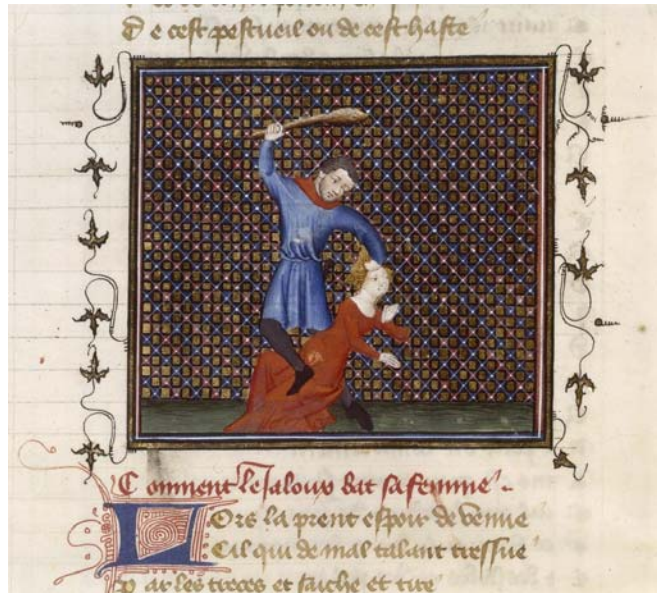 D e cest pestueil ou de cest haste
C omment le Jaloux bat sa femme
LOrs la prent espoir de venue
C il qui de mal talant tressue
P ar les treces et saiche et tire